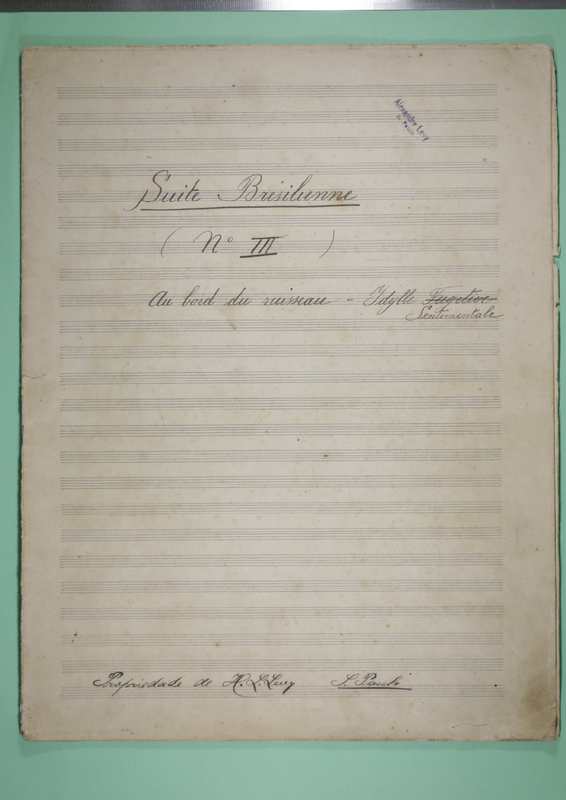 Alexandre Levy
S. Paulo
Suite Brésilienne
( Nº III )
Au bord du ruisseau - Idylle Fugitive
Sentimentale
Propriedade de H. L. Levy S. Paulo